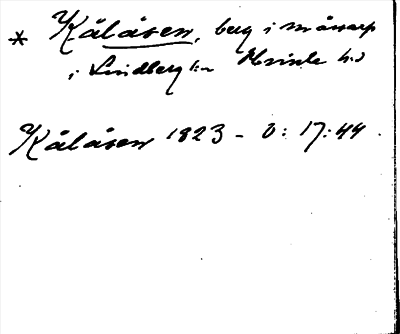 * Kålåsen, berg i Mårarp
i Lindberg sn Himle hd
Kålåsen 1823 - 0: 17: 44.